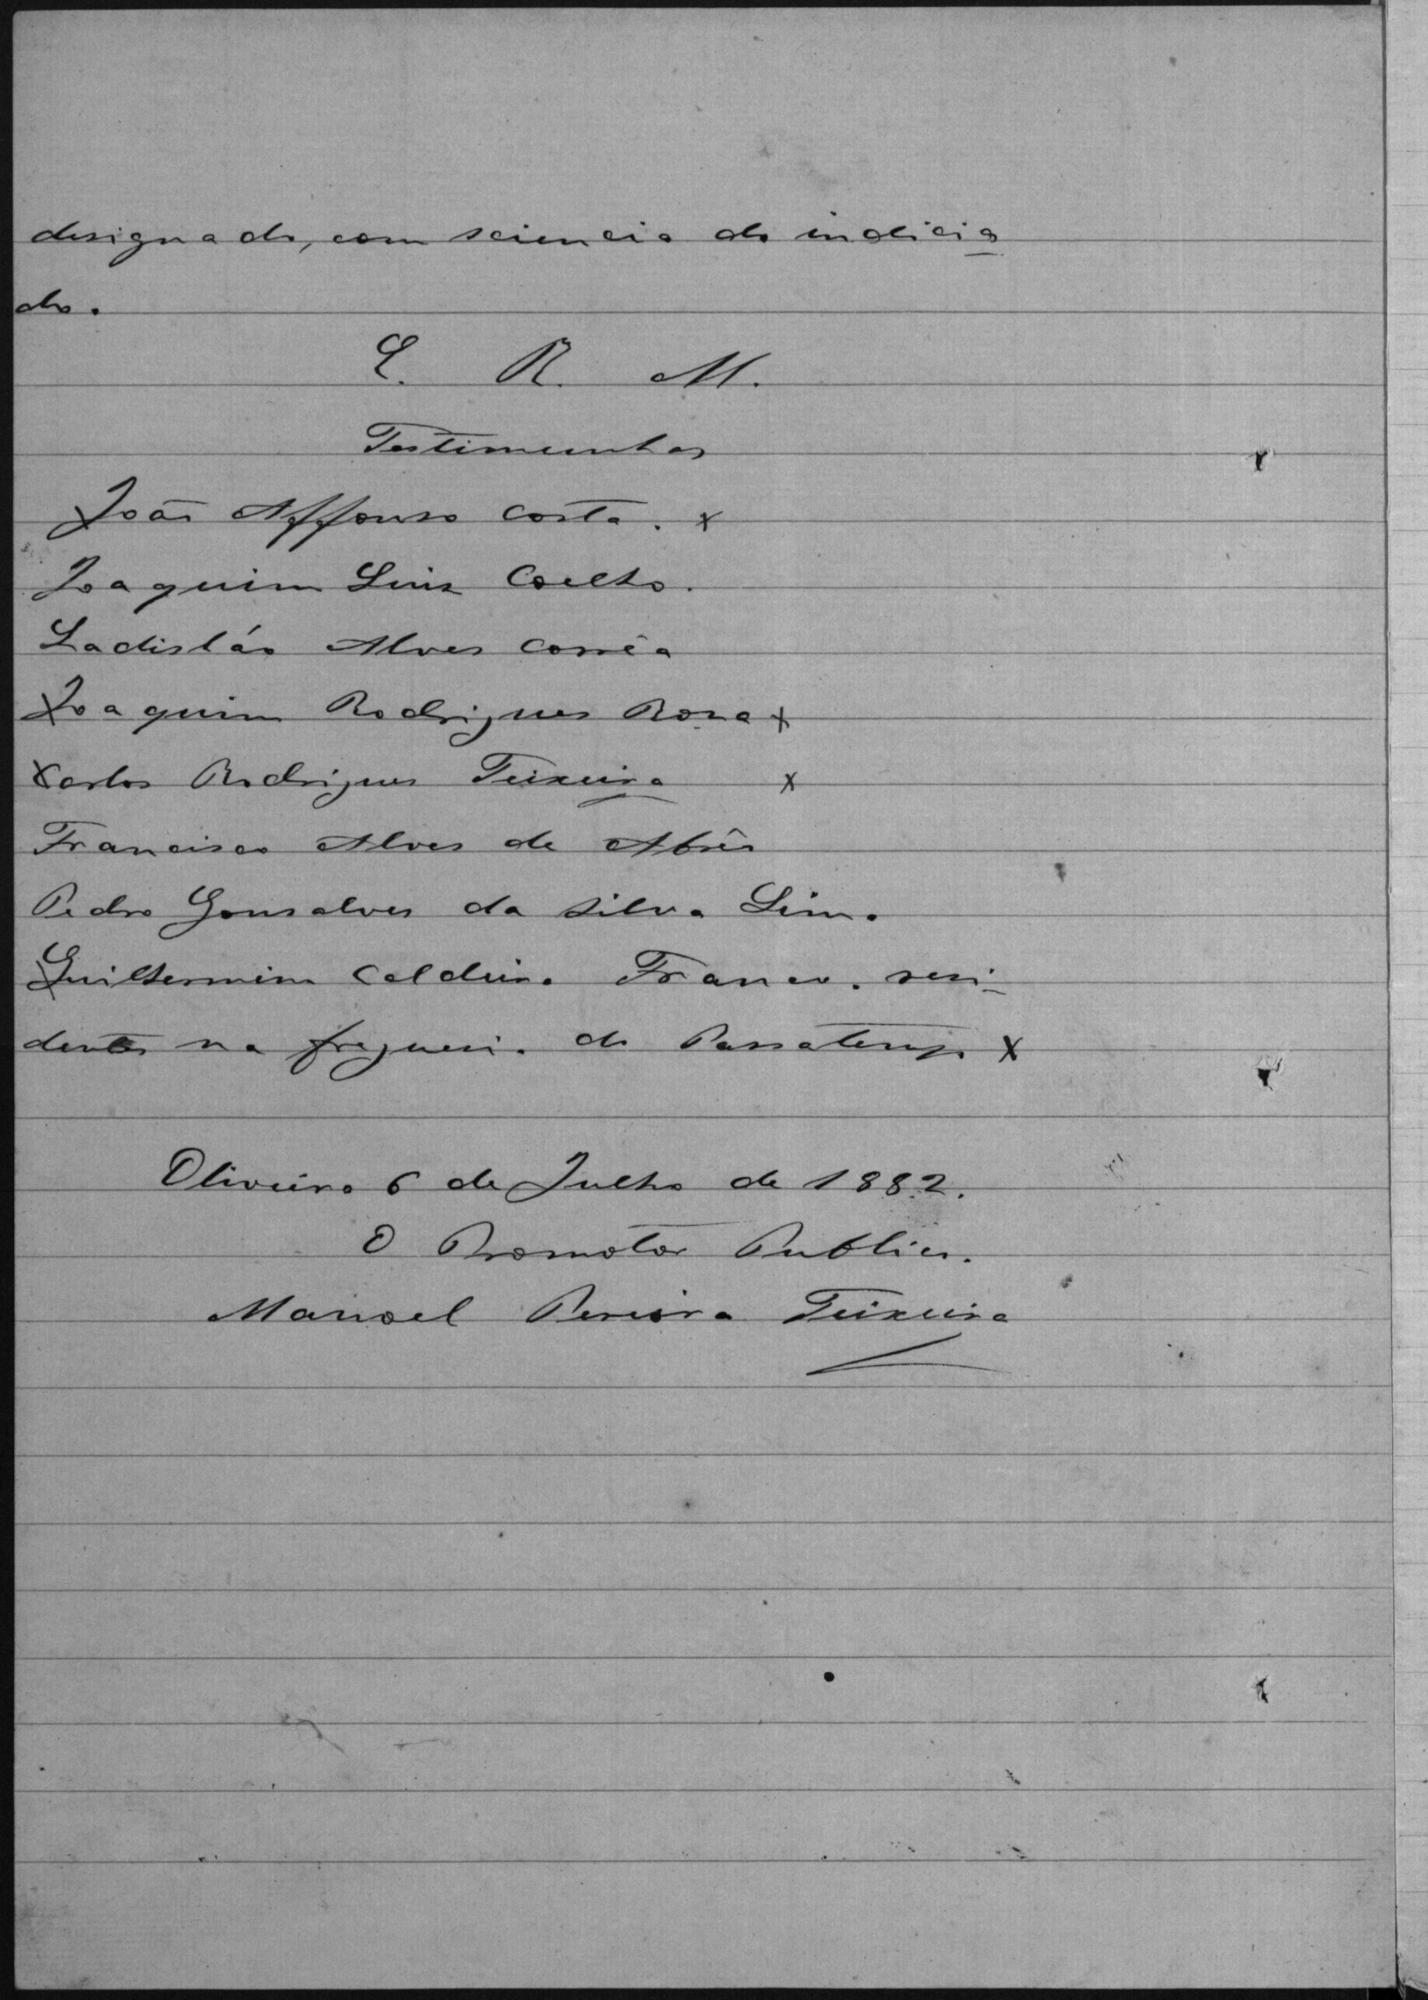 designado, com sciencia do indicia
do.
E. R. M.
Testimunhas
João Affonso Costa. x
Joaquim Luiz Coelho.
Ladisláo Alves Corrêa
Joaquim Rodrigues Rosa x
Carlos Rodrigues Teixeira x
Francisco Alves de Abrêo
Pedro Gonsalves da Silva Lima
Guilhermino Caldeira Franco. resi-
dentes na freguesia do Passatempo x
Oliveira 6 de Julho de 1882.
O Promotor Publico.
Manoel Pereira Teixeira